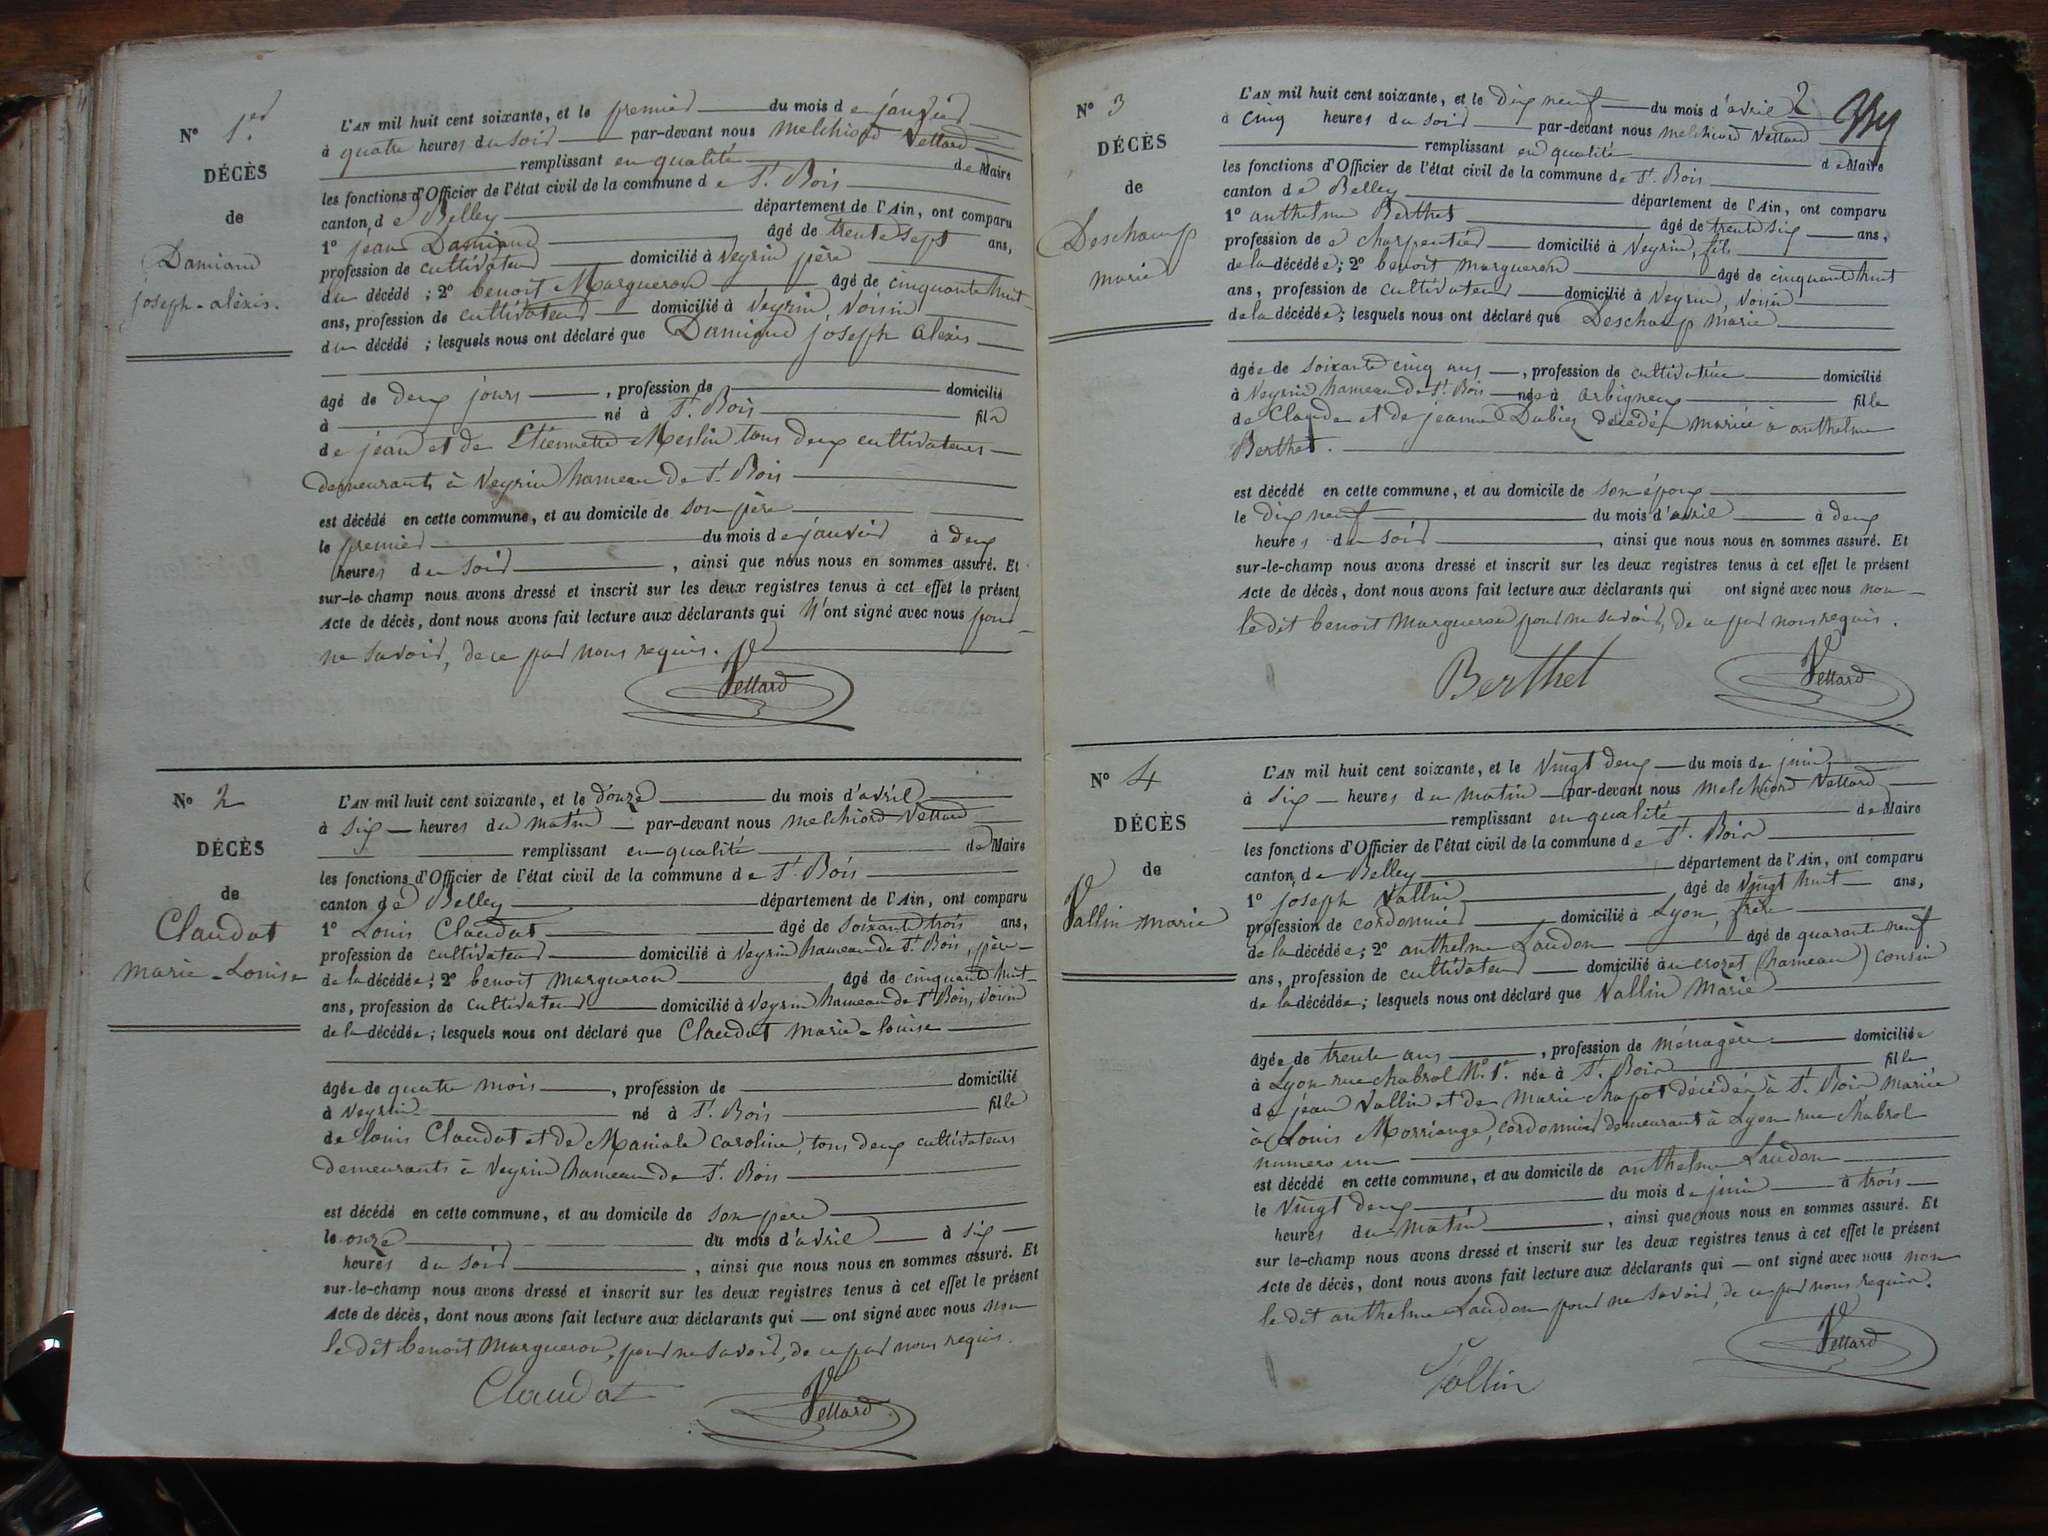 N° 1er
DÉCÈS
de
Damiand
joseph-alexis.
L'AN mil huit cent soixante, et le premier du mois de janvier
à quatre heures du soir par-devant nous melchiord Vettard
remplissant en qualité de Maire
les fonctions d'Officier de l'état civil de la commune de St. Bois
canton de Belley département de l'Ain, ont comparu
1° jean Damiand âgé de trente sept ans,
profession de cultivateur domicilié à Veyrin père
du décédé ; 2° benoit Margueron âgé de cinquante huit
ans, profession de cultivateur domicilié à Veyrin, voisin
du décédé ; lesquels nous ont déclaré que Damiand joseph alexis
âgé de deux jours, profession de domicilié
à né à St. Bois fils
de jean et de Etiennette Merlin tous deux cultivateurs
demeurants à Veyrin hameau de St. Bois
est décédé en cette commune, et au domicile de son père
le premier du mois de janvier à deux
heures du soir, ainsi que nous nous en sommes assuré. Et
sur-le-champ nous avons dressé et inscrit sur les deux registres tenus à cet effet le présent
Acte de décès, dont nous avons fait lecture aux déclarants qui n'ont signé avec nous pour
ne savoir, de ce par nous requis.
Vettard
N° 2
DÉCÈS
de
Claudat
marie-Louise
L'AN mil huit cent soixante, et le douze du mois d'avril
à six heures du matin par-devant nous melchiord Vettard
remplissant en qualité de Maire
les fonctions d'Officier de l'état civil de la commune de St. Bois
canton de Belley département de l'Ain, ont comparu
1° Louis Claudat âgé de soixante trois ans,
profession de cultivateur domicilié à Veyrin hameau de St. Bois, père
de la décédée ; 2° benoit margueron âgé de cinquante huit
ans, profession de cultivateur domicilié à Veyrin hameau de St Bois, voisin
de la décédée ; lesquels nous ont déclaré que Claudat marie-louise
âgée de quatre mois, profession de domicilié
à Veyrin né à St. Bois fille
de louis Claudat et de Caroline, tous deux cultivateurs
demeurants à Veyrin hameau de St. Bois
est décédé en cette commune, et au domicile de son père
le onze du mois d'avril à six
heures du soir, ainsi que nous nous en sommes assuré. Et
sur-le-champ nous avons dressé et inscrit sur les deux registres tenus à cet effet le présent
Acte de décès, dont nous avons fait lecture aux déclarants qui ont signé avec nous non
le dit benoit Margueron, pour ne savoir, de ce par nous requis.
Claudat Vettard
2
N° 3
DÉCÈS
de
Deschamp
marie
L'AN mil huit cent soixante, et le dix neuf du mois d'avril
à cinq heures du soir par-devant nous melchiord Vettard
remplissant en qualité de Maire
les fonctions d'Officier de l'état civil de la commune de St. Bois
canton de Belley département de l'Ain, ont comparu
1° anthelme Berthet âgé de trente six ans,
profession de charpentier domicilié à Veyrin, fils
de la décédée ; 2° benoit margueron âgé de cinquante huit
ans, profession de cultivateur domicilié à Veyrin, voisin
de la décédée ; lesquels nous ont déclaré que Deschamp marie
âgée de soixante cinq ans, profession de cultivatrice domicilié
à Veyrin hameau de St. Bois née à arbignieu fille
de Claude et de jeanne Dubiez décédés mariée à anthelme
Berthet.
est décédé en cette commune, et au domicile de son époux
le dix neuf du mois d'avril à deux
heures du soir, ainsi que nous nous en sommes assuré. Et
sur-le-champ nous avons dressé et inscrit sur les deux registres tenus à cet effet le présent
Acte de décès, dont nous avons fait lecture aux déclarants qui ont signé avec nous non
le dit benoit Margueron pour ne savoir, de ce par nous requis.
Berthet Vettard
N° 4
DÉCÈS
de
Vallin marie
L'AN mil huit cent soixante, et le vingt deux du mois de juin
à six heures du matin par-devant nous melchiord Vettard
remplissant en qualité de Maire
les fonctions d'Officier de l'état civil de la commune de St. Bois
canton de Belley département de l'Ain, ont comparu
1° joseph Vallin âgé de vingt huit ans,
profession de cordonnier domicilié à Lyon, frère
de la décédée ; 2° anthelme Laudon âgé de quarante neuf
ans, profession de cultivateur domicilié au crozet (hameau) cousin
de la décédée ; lesquels nous ont déclaré que Vallin Marie
âgée de trente ans, profession de ménagère domiciliée
à Lyon rue chabrol N° 1er. née à St. Bois fille
de jean Vallin et de Marie chapot décédés à St. Bois mariée
à Louis Morriange, cordonnier demeurant à Lyon rue chabrol
numero un
est décédé en cette commune, et au domicile de anthelme Laudon
le vingt deux du mois de juin à trois
heures du matin, ainsi que nous nous en sommes assuré. Et
sur le-champ nous avons dressé et inscrit sur les deux registres tenus à cet effet le présent
Acte de décès, dont nous avons fait lecture aux déclarants qui ont signé avec nous non
le dit anthelme Laudon pour ne savoir, de ce par nous requis.
Vallin Vettard